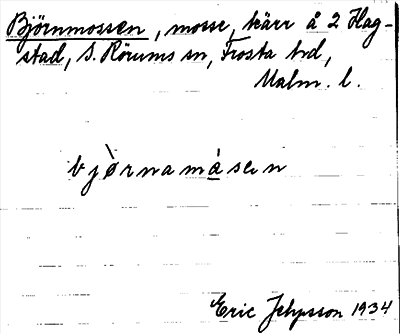 Björnmossen, mosse, kärr å 2 Hag-
stad, S. Rörums sn, Frosta hd,
Malm. l.
bjòrnamåsen
Eric 1934